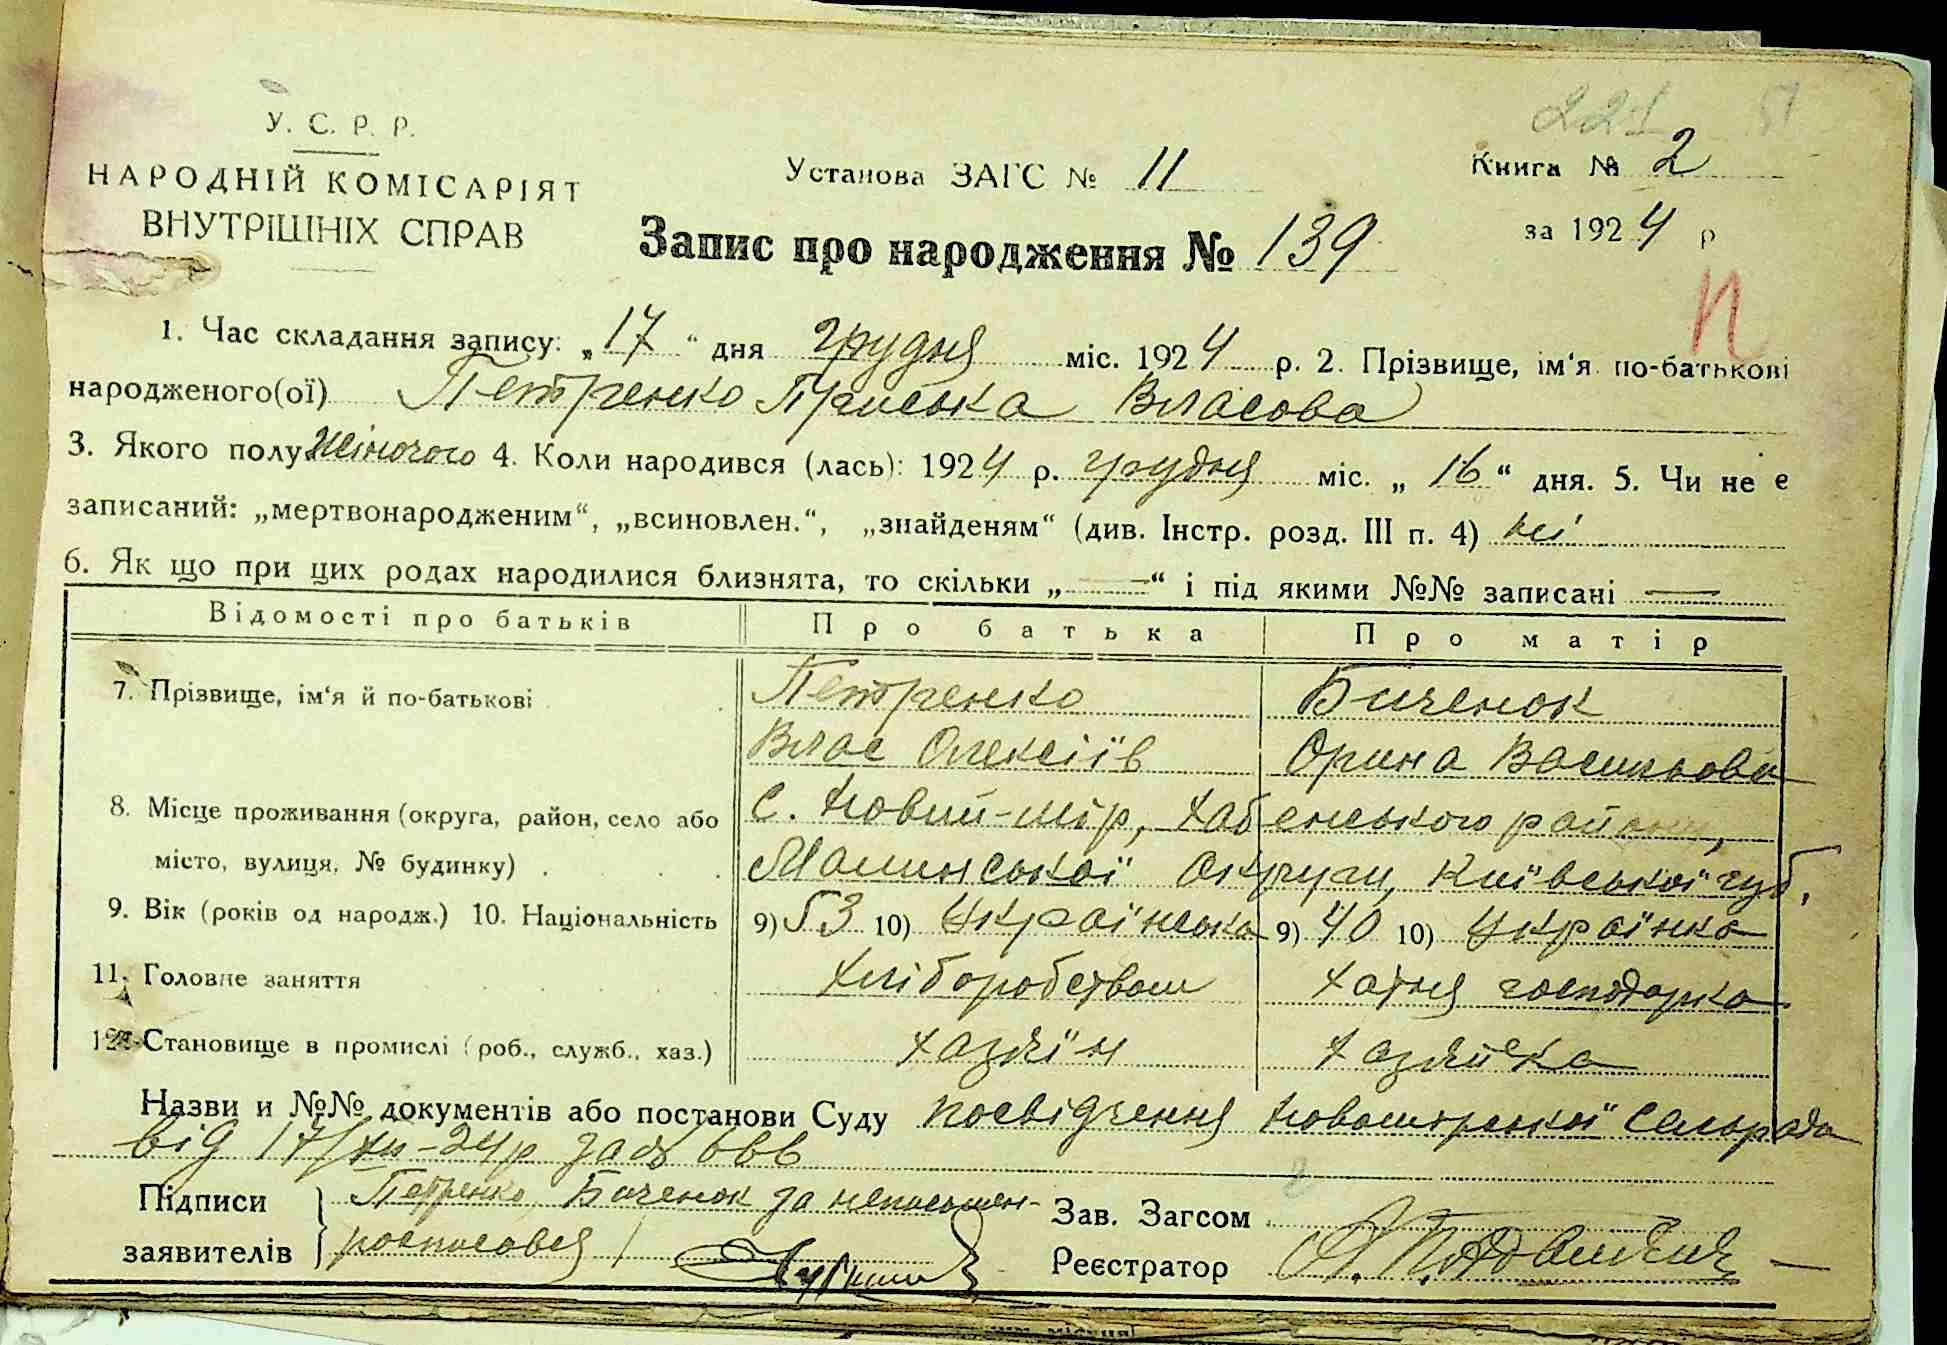 221
У. С. Р. Р.
НАРОДНІЙ КОМІСАРІЯТ
ВНУТРІШНІХ СПРАВ
Установа ЗАГС № 11
Книга № 2
за 1924 р
Запис про народження № 139
П
1. Час складання запису: „17“ дня грудня міс. 1924 р. 2. Прізвище, ім‘я по-батькові
народженого(ої) Петренко Приська Власова
3. Якого полу Жіночого 4. Коли народився (лась): 1924 р. грудня міс. „16“ дня. 5. Чи не є
записаний: „мертвонародженим“, „всиновлен.“, „знайденям“ (див. Інстр. розд. III п. 4) ні
6. Як що при цих родах народилися близнята, то скільки „—“ і під якими №№ записані —
Відомості про батьків Про батька Про матір
7. Прізвище, ім‘я й по-батькові Петренко Биченок
Влас Олексіїв Орина Васильова
8. Місце проживання (округа, район, село або С. Новий-Мір, Хабенського району,
місто, вулиця, № будинку) Малинської Округи, Київської губ.
9. Вік (років од народж.) 10. Національність 9) 53 10) Українська 9) 40 10) Українка
11. Головне заняття Хліборобством Хатня господарка
12. Становище в промислі (роб., служб., хаз.) Хазяїн Хазяйка
Назви и №№ документів або постанови Суду посвідчення Новомірської Сельрада
від 17/XII-24р за № 666
Підписи Петренко, Биченок за неписьмен-
заявителів росписовся
Зав. Загсом
Реєстратор